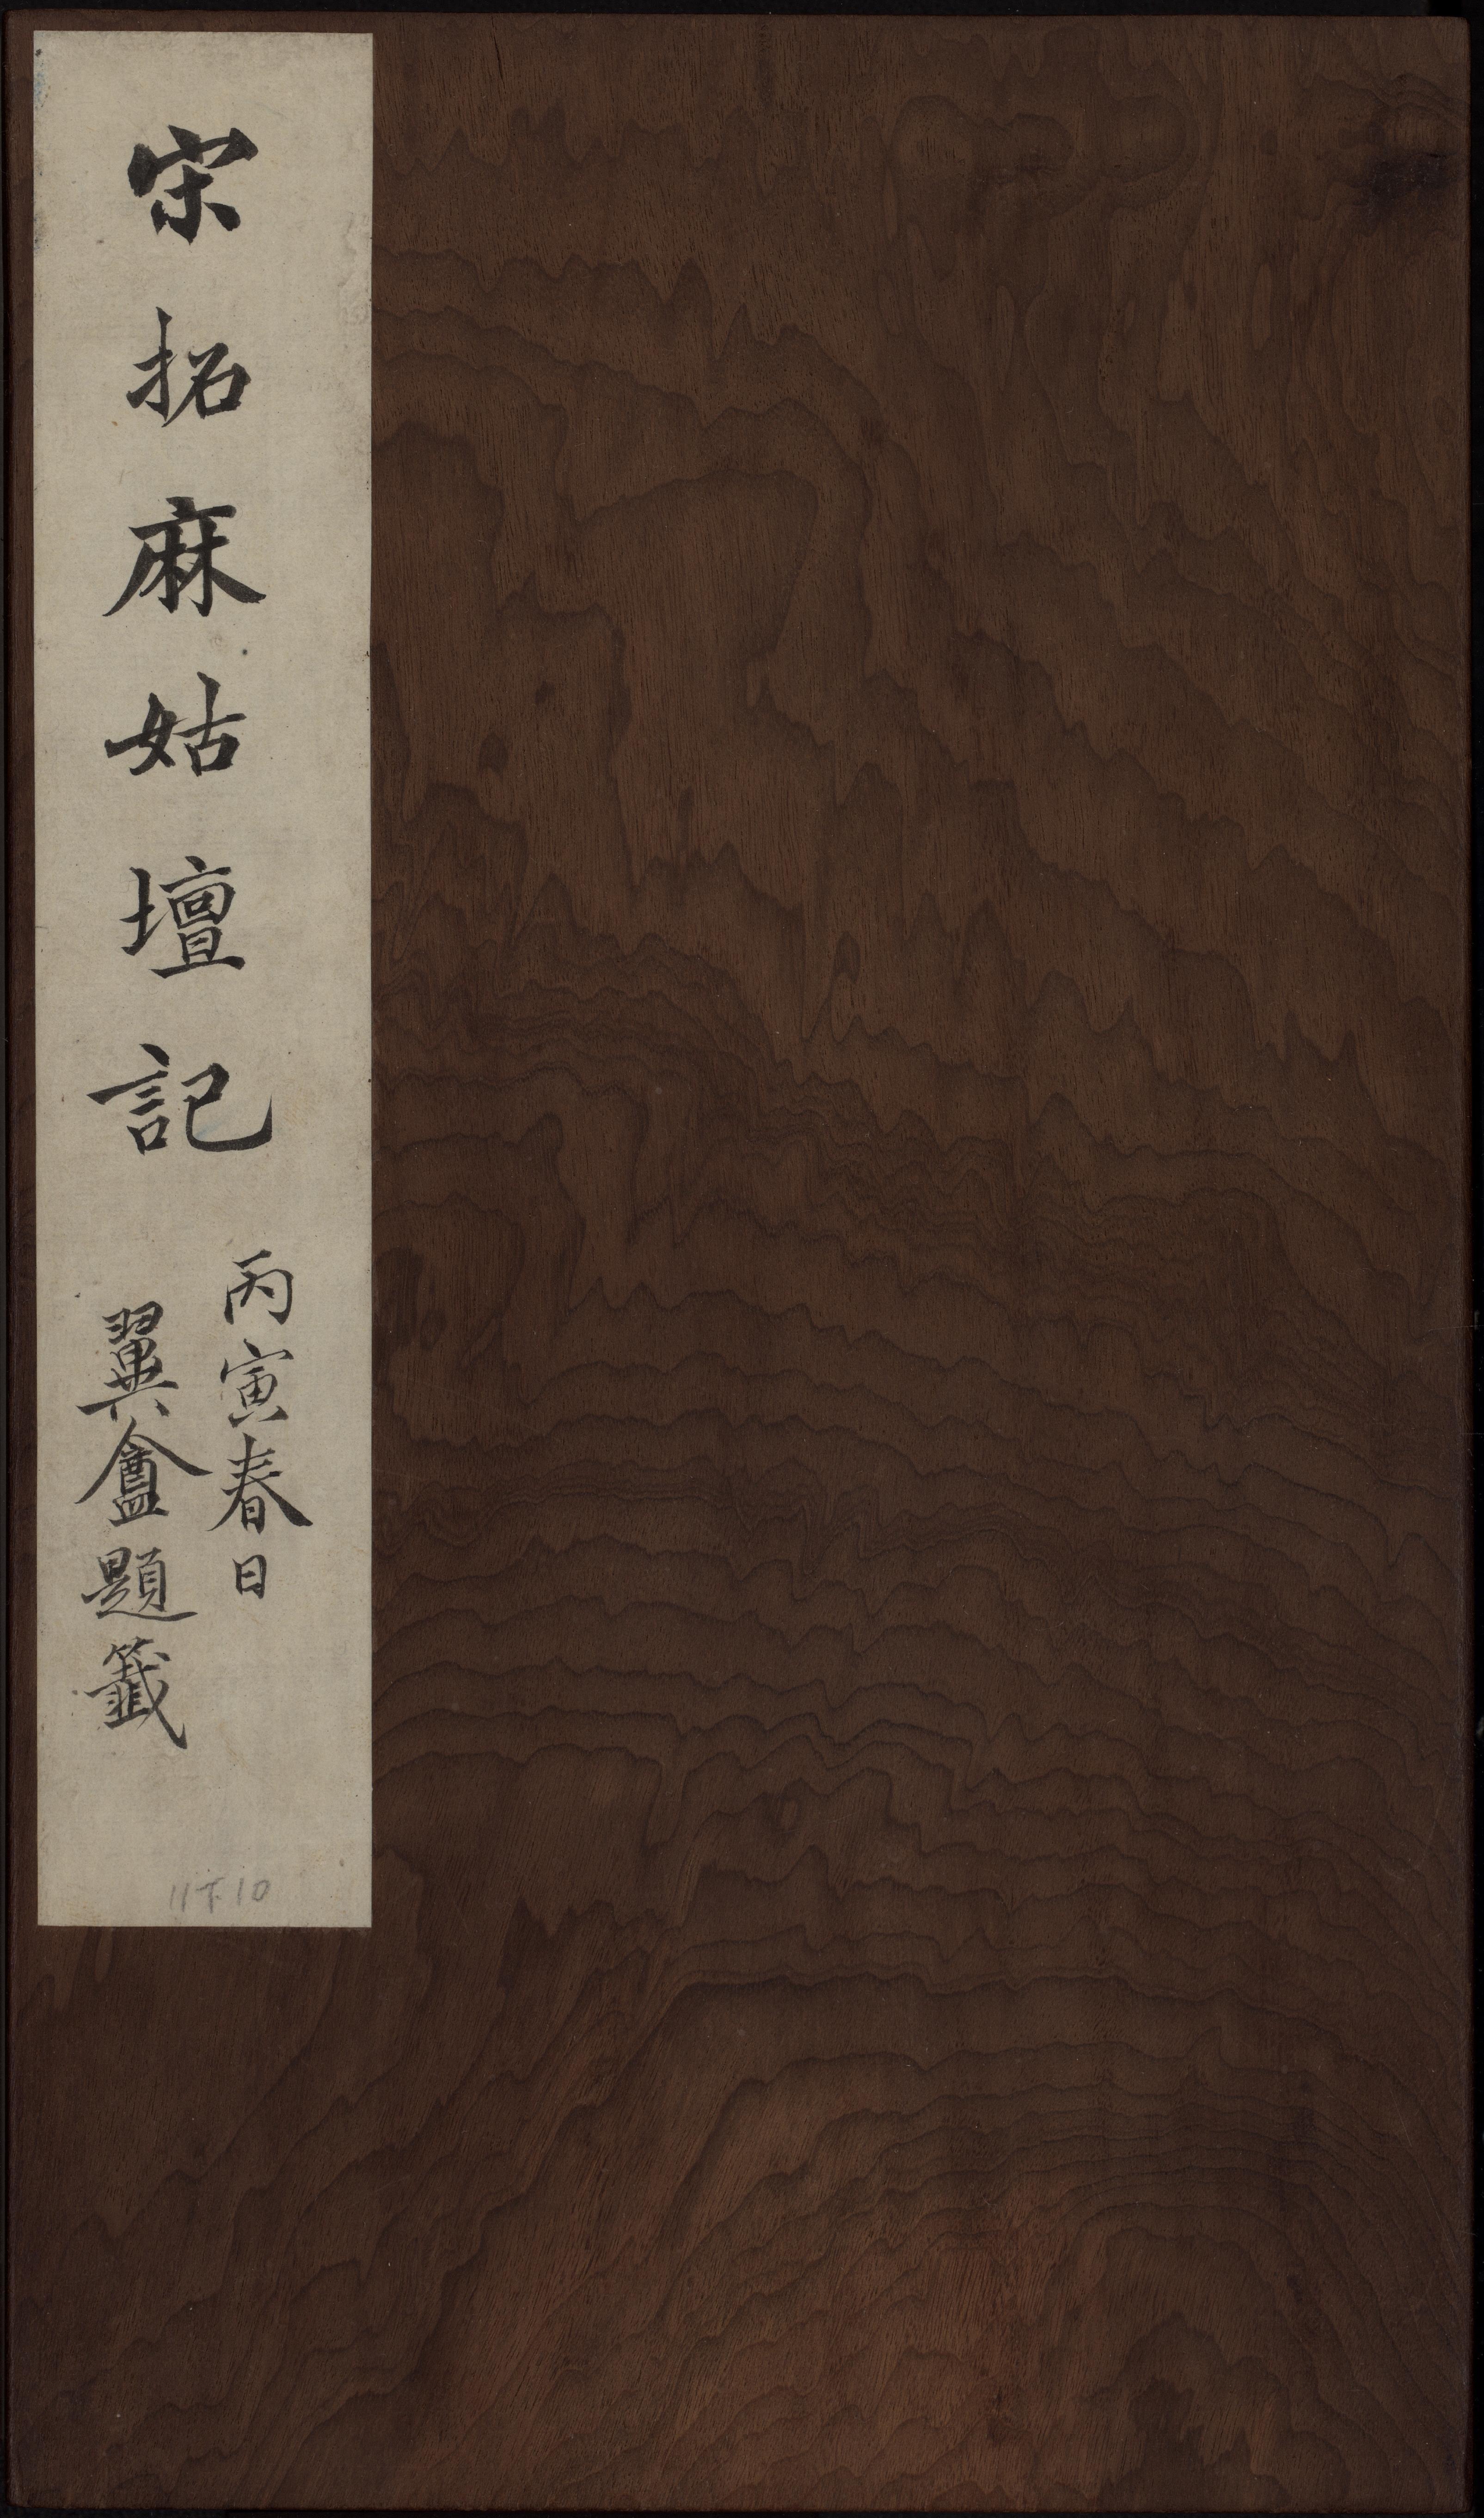 宋拓麻姑壇記
丙寅春日
翼盦題籤
11下10